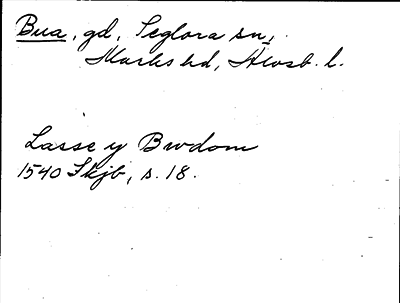 Bua, gd, Seglora sn,
Marks hd, Älvsb. l.
Lasse y Bwdom
1540 Skjb, s. 18.